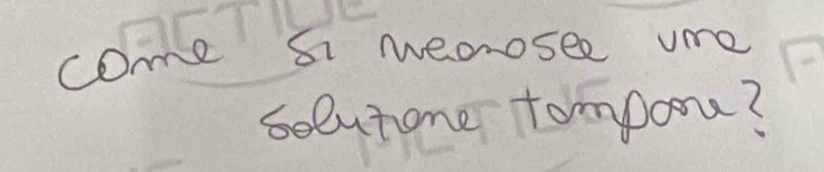 come si riconosce una
soluzione tampone?